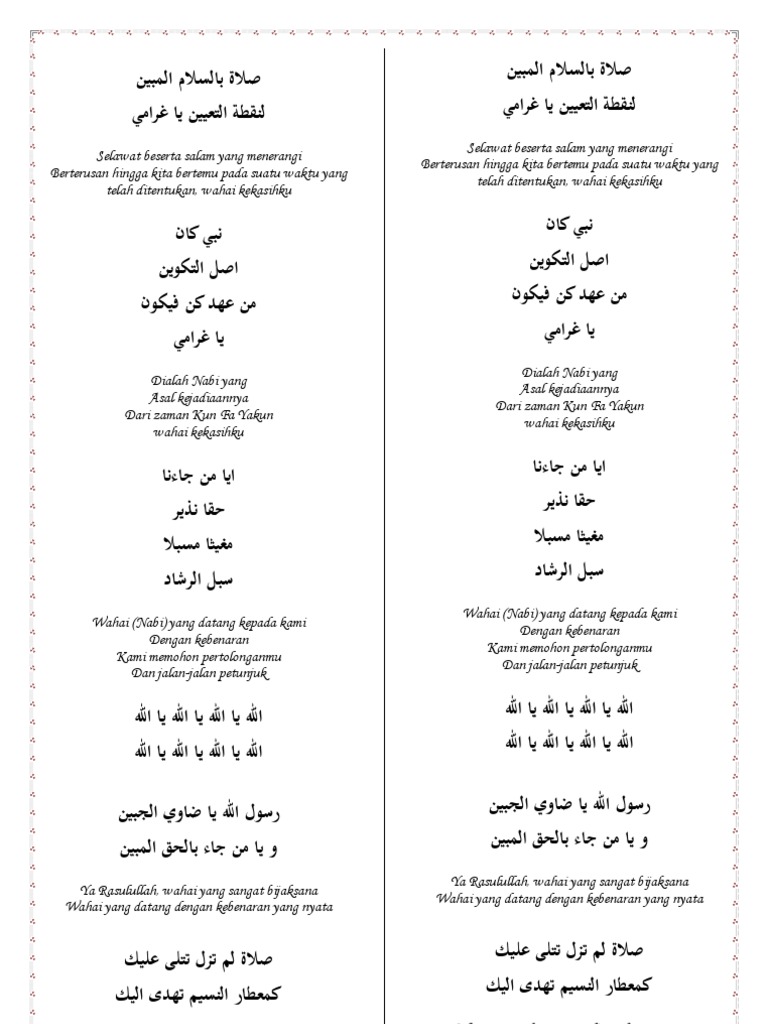 صلاة بالسلام المبين
لنقطة التعيين يا غرامي
Selawat beserta salam yang menerangi
Berterusan hingga kita bertemu pada suatu waktu yang
telah ditentukan, wahai kekasihku
نبي كان
اصل التكوين
من عهد كن فيكون
يا غرامي
Dialah Nabi yang
Asal kejadiaannya
Dari zaman Kun Fa Yakun
wahai kekasihku
ايا من جاءنا
حقا نذير
مغيثا مسبلا
سبل الرشاد
Wahai (Nabi) yang datang kepada kami
Dengan kebenaran
Kami memohon pertolonganmu
Dan jalan-jalan petunjuk
الله يا الله يا الله يا الله
الله يا الله يا الله يا الله
رسول الله يا ضاوي الجبين
و يا من جاء بالحق المبين
Ya Rasulullah, wahai yang sangat bijaksana
Wahai yang datang dengan kebenaran yang nyata
صلاة لم تزل تتلى عليك
كمعطار النسيم تهدى اليك
صلاة بالسلام المبين
لنقطة التعيين يا غرامي
Selawat beserta salam yang menerangi
Berterusan hingga kita bertemu pada suatu waktu yang
telah ditentukan, wahai kekasihku
نبي كان
اصل التكوين
من عهد كن فيكون
يا غرامي
Dialah Nabi yang
Asal kejadiaannya
Dari zaman Kun Fa Yakun
wahai kekasihku
ايا من جاءنا
حقا نذير
مغيثا مسبلا
سبل الرشاد
Wahai (Nabi) yang datang kepada kami
Dengan kebenaran
Kami memohon pertolonganmu
Dan jalan-jalan petunjuk
الله يا الله يا الله يا الله
الله يا الله يا الله يا الله
رسول الله يا ضاوي الجبين
و يا من جاء بالحق المبين
Ya Rasulullah, wahai yang sangat bijaksana
Wahai yang datang dengan kebenaran yang nyata
صلاة لم تزل تتلى عليك
كمعطار النسيم تهدى اليك